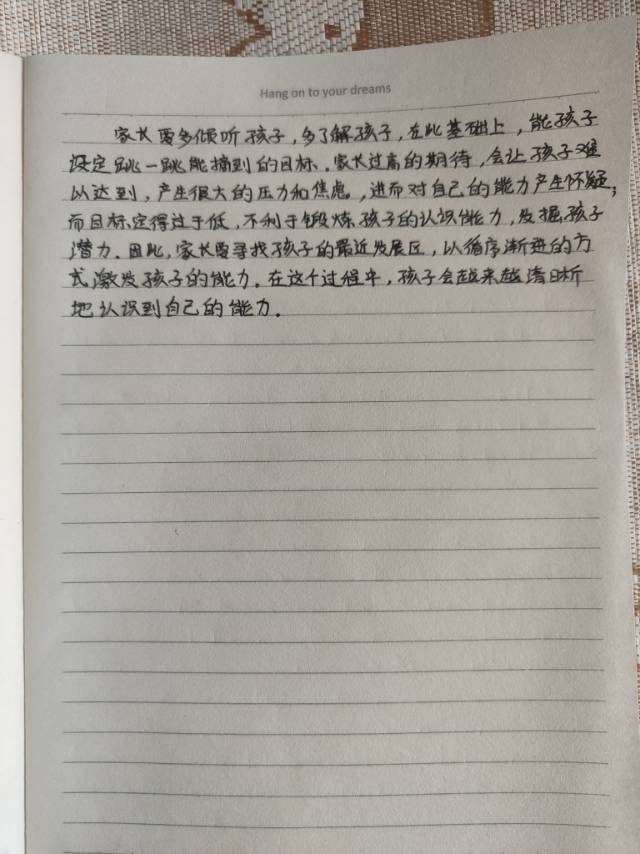 Hang on to your dreams
家长要多倾听孩子,多了解孩子,在此基础上,能孩子
设定跳一跳能摘到的目标。家长过高的期待,会让孩子难
以达到,产生很大的压力和焦虑,进而对自己的能力产生怀疑;
而目标定得过于低,不利于锻炼孩子的认识能力,发掘孩子
潜力。因此,家长要寻找孩子的最近发展区,以循序渐进的方
式激发孩子的能力。在这个过程中,孩子会越来越清晰
地认识到自己的能力。